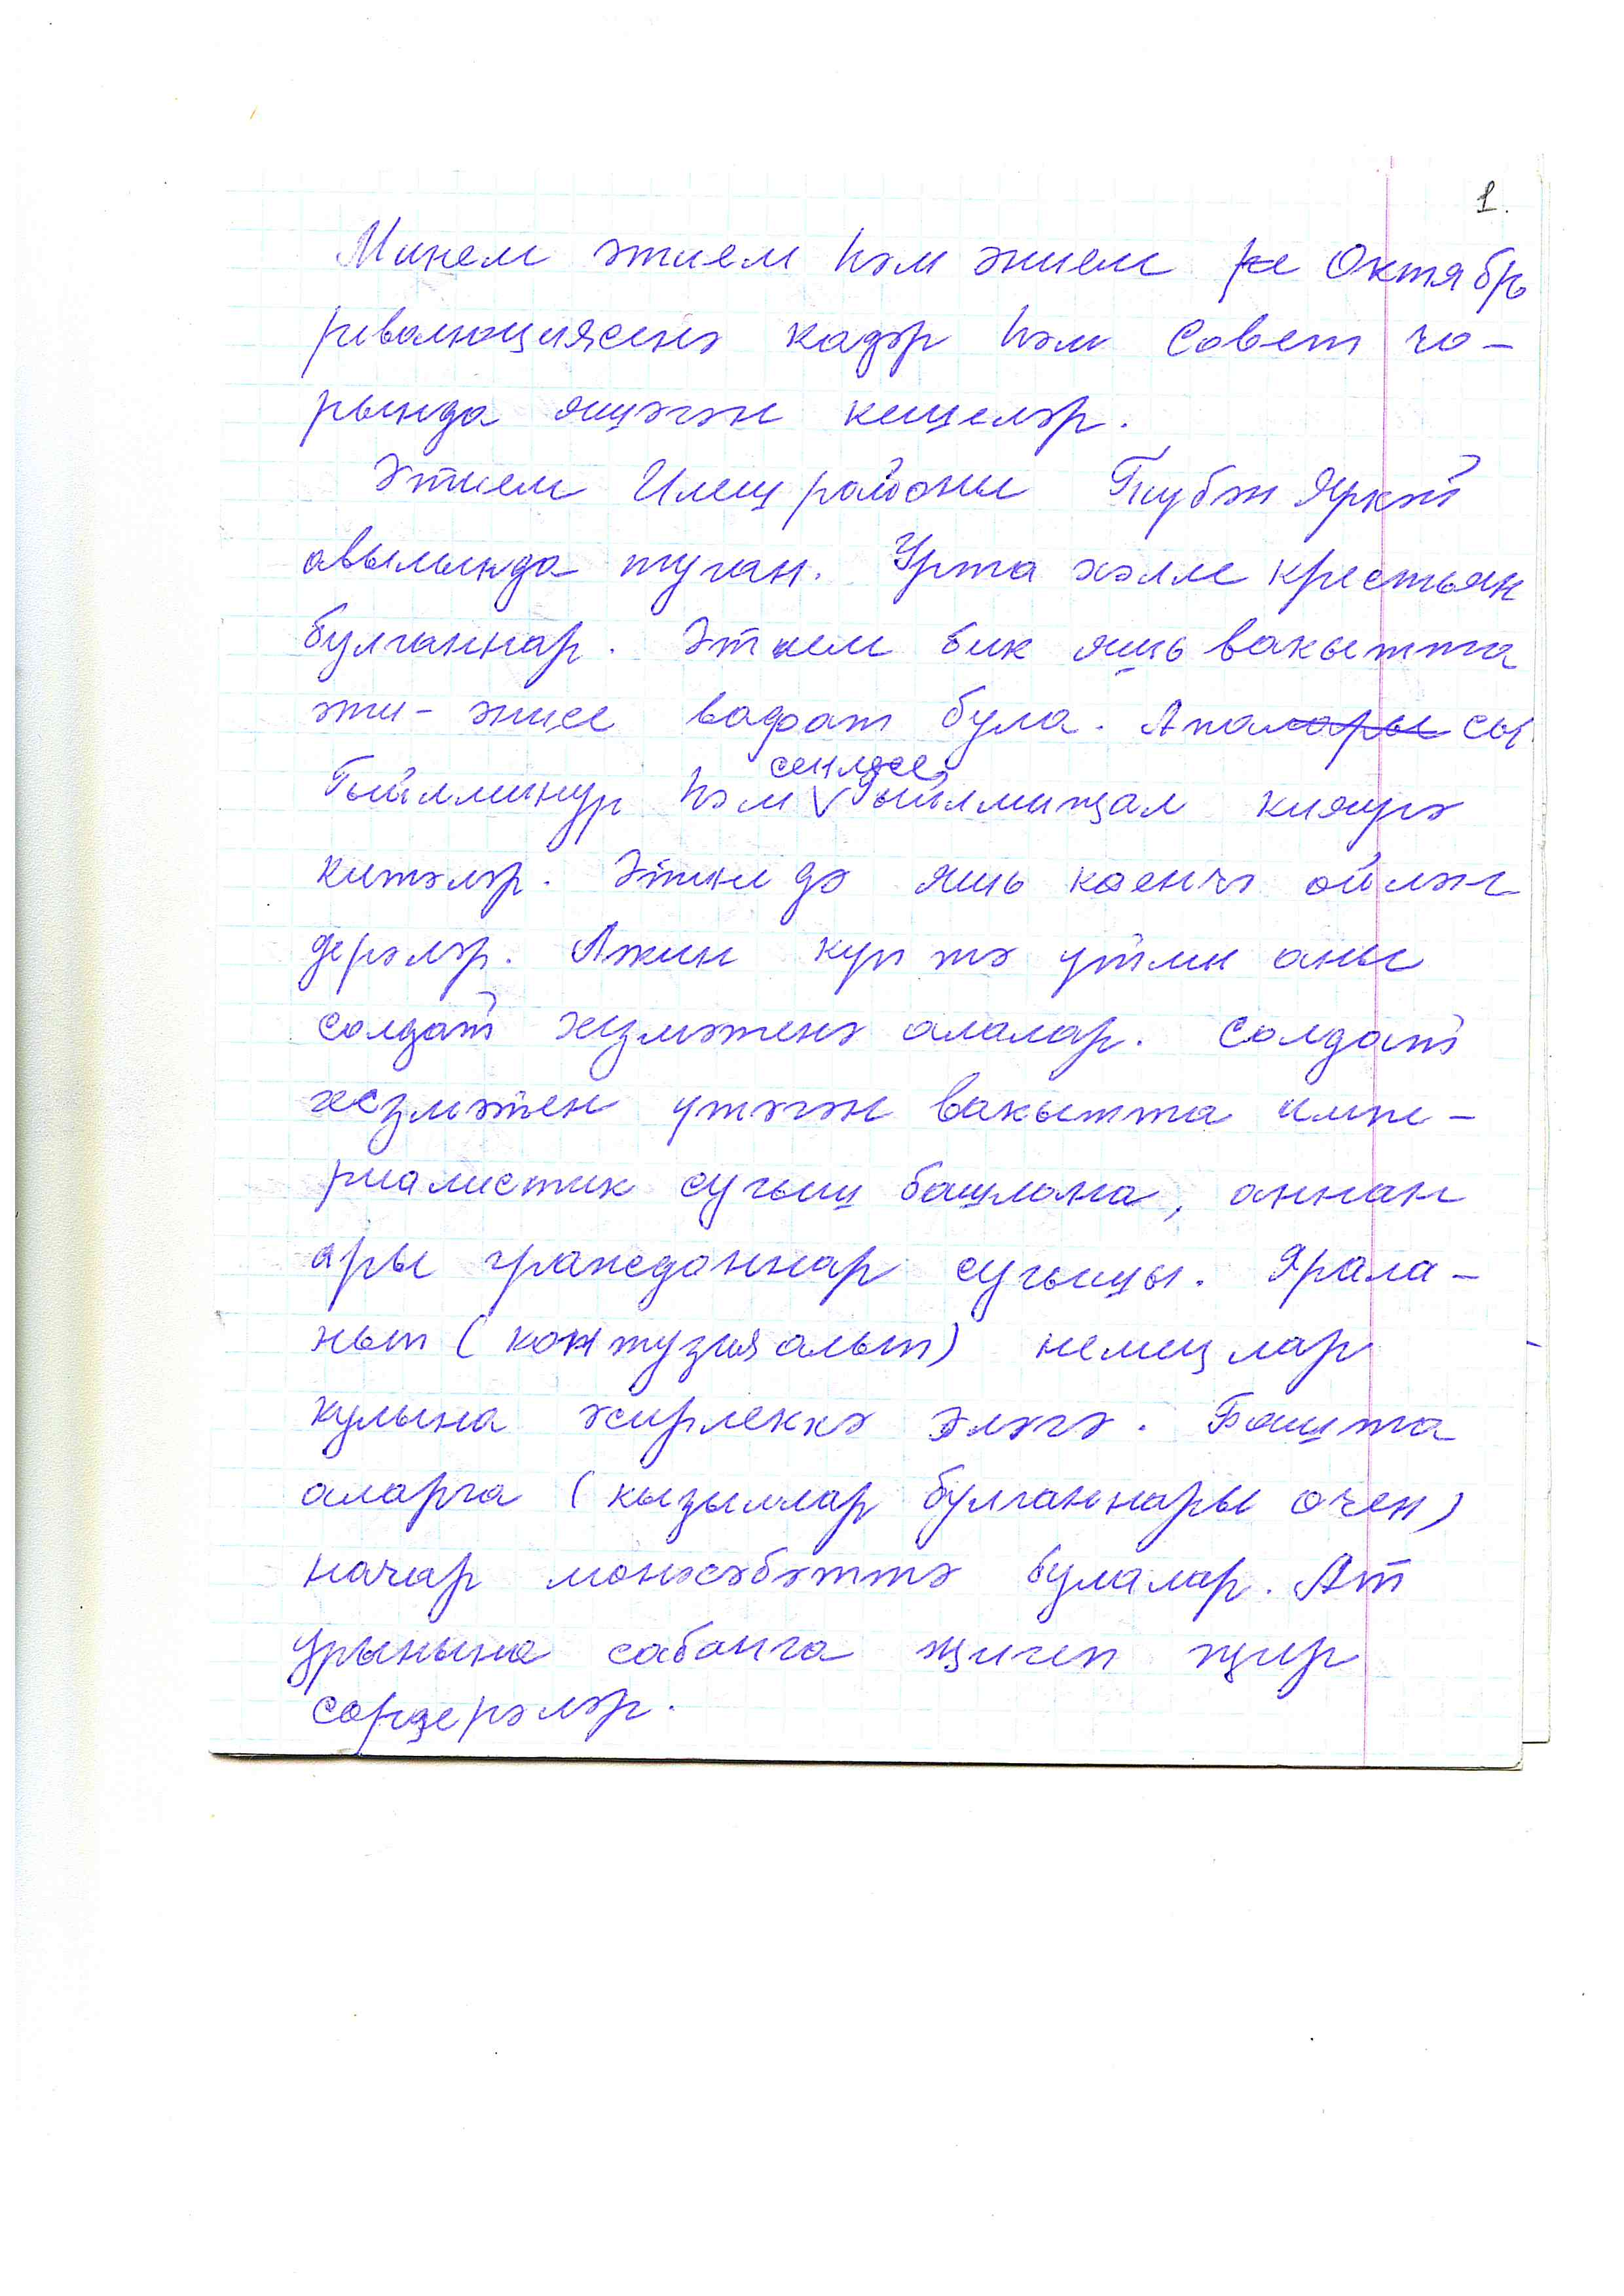 1.
Минем әтием һәм әнием ре Октябрь
революциясенә кадәр һәм Совет чо-
рында яшәгән кешеләр.
Әтием Илеш районы Түбән Яркәй
авылында туган. Урта хәлле крестьян
булганнар. Әтием бик яшь вакытта
әти-әнисе вафат була. Апалары сы
сеңлесе
Гыйлминур һәм Гыйлмиҗал кияүгә
китәләр. Әтине дә яшь көенчә өйлән
дерәләр. Ләкин күп тә үтми аны
солдат хезмәтенә алалар. Солдат
хезмәтен үтәгән вакытта импе-
риалистик сугыш башлана, аннан
ары гражданнар сугышы. Ярала-
нып (контузия алып) немецлар
кулына әсирлеккә эләгә. Башта
аларга (кызыллар булганнары өчен)
начар мөнәсәбәттә булалар. Ат
урынына сабанга җигеп җир
сөрдерәләр.